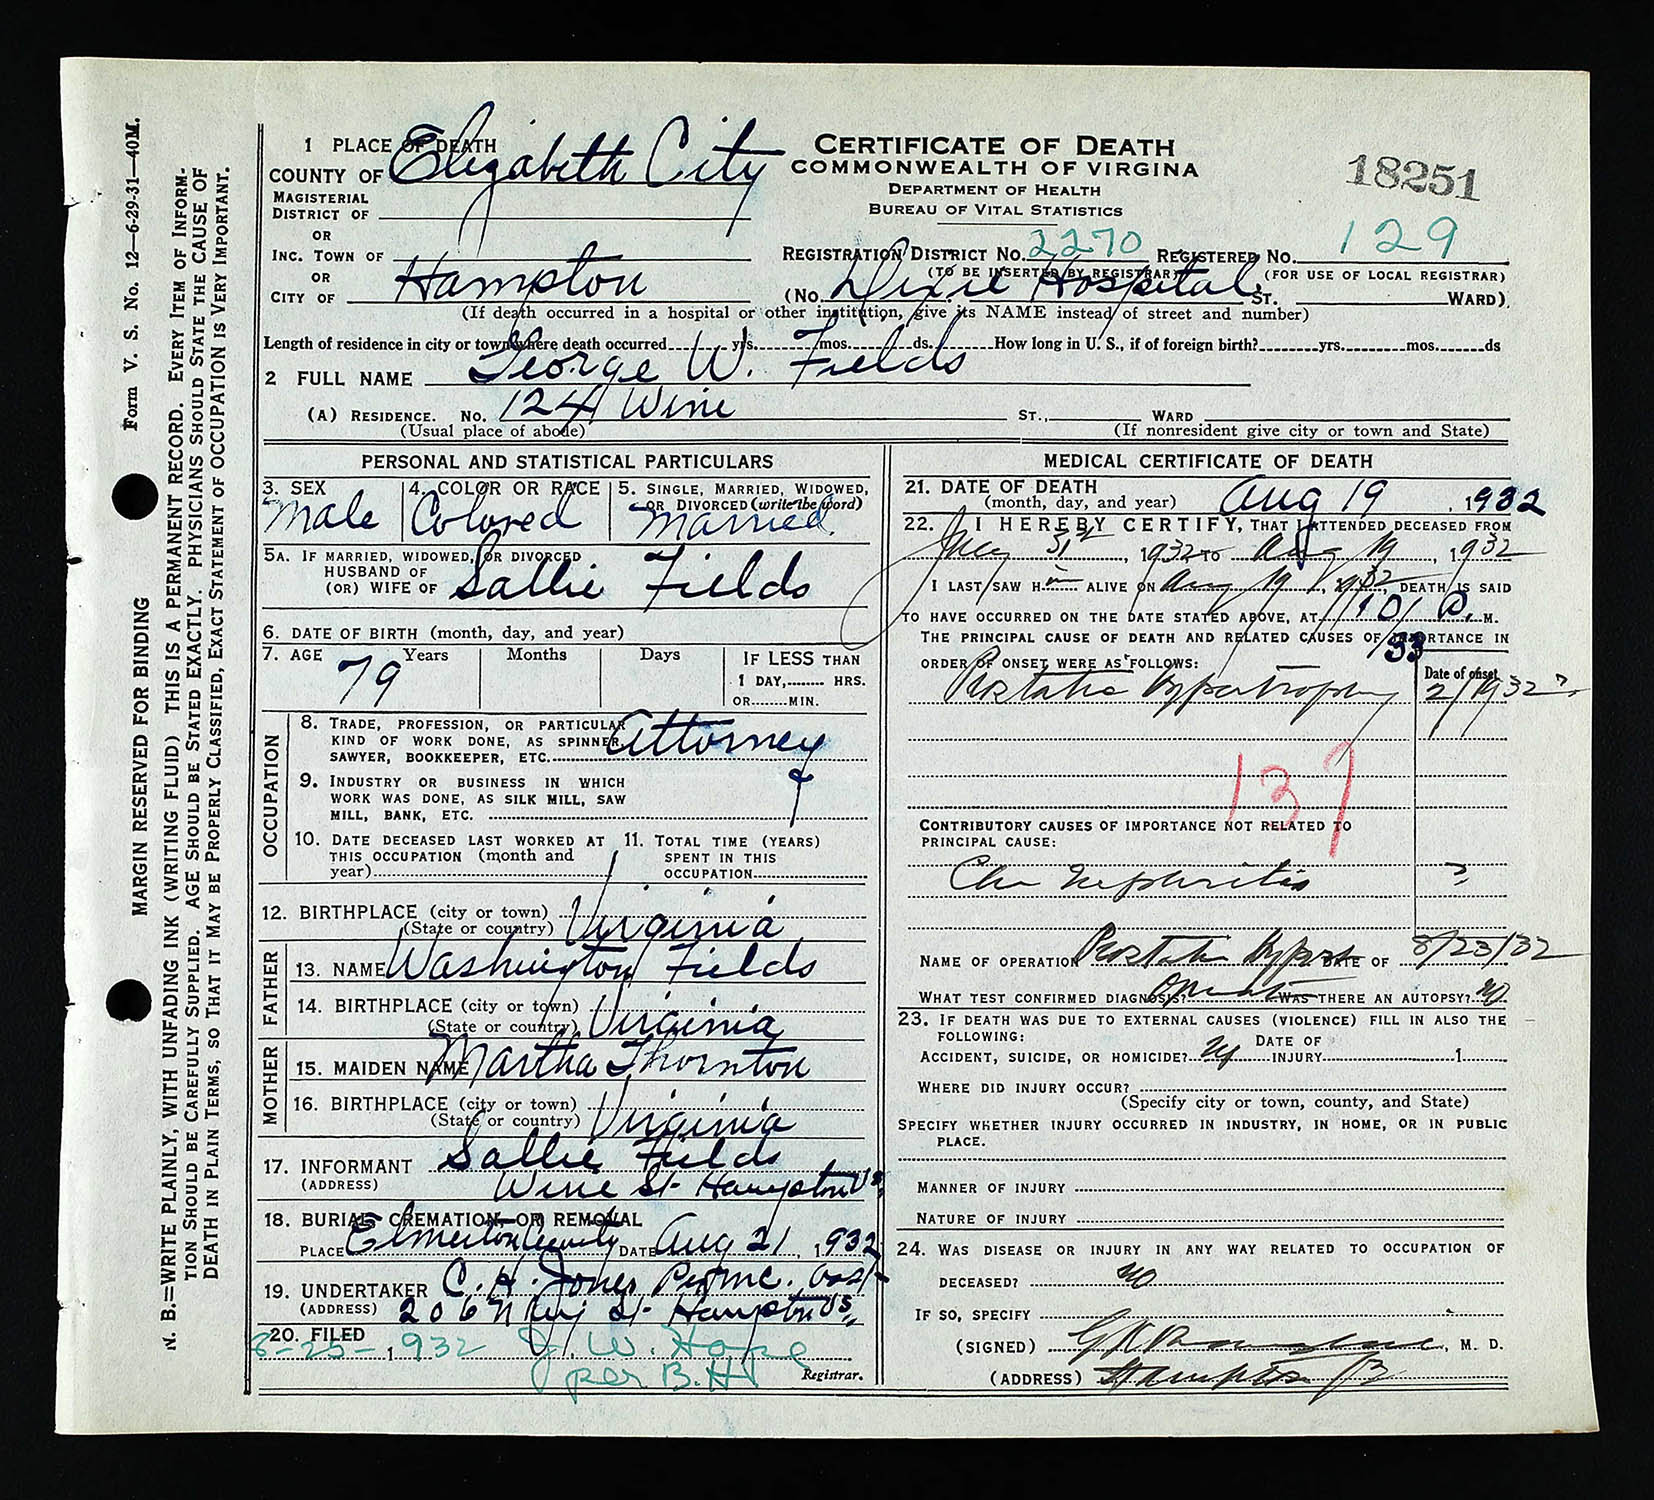 Form V. S. No. 12—6-29-31—40M.
MARGIN RESERVED FOR BINDING
N. B.=WRITE PLAINLY, WITH UNFADING INK (WRITING FLUID) THIS IS A PERMANENT RECORD. EVERY ITEM OF INFORM-
TION SHOULD BE CAREFULLY SUPPLIED. AGE SHOULD BE STATED EXACTLY. PHYSICIANS SHOULD STATE THE CAUSE OF
DEATH IN PLAIN TERMS, SO THAT IT MAY BE PROPERLY CLASSIFIED, EXACT STATEMENT OF OCCUPATION IS VERY IMPORTANT.
1 PLACE OF DEATH
COUNTY OF Elizabeth City
MAGISTERIAL
DISTRICT OF
OR
INC. TOWN OF
OR
CITY OF Hampton
CERTIFICATE OF DEATH
COMMONWEALTH OF VIRGINA
DEPARTMENT OF HEALTH
BUREAU OF VITAL STATISTICS
18251
REGISTRATION DISTRICT NO. 2270 REGISTERED NO. 129
(TO BE INSERTED BY REGISTRAR) (FOR USE OF LOCAL REGISTRAR)
(NO. Dixie Hospital ST. WARD)
(If death occurred in a hospital or other institution, give its NAME instead of street and number)
Length of residence in city or town where death occurred yrs. mos. ds. How long in U. S., if of foreign birth? yrs. mos. ds
2 FULL NAME George W. Fields
(A) RESIDENCE. NO. 124 Wine ST., WARD
(Usual place of abode) (If nonresident give city or town and State)
PERSONAL AND STATISTICAL PARTICULARS
3. SEX Male
4. COLOR OR RACE Colored
5. SINGLE, MARRIED, WIDOWED,
OR DIVORCED (write the word)
Married.
5A. IF MARRIED, WIDOWED, OR DIVORCED
HUSBAND OF
(OR) WIFE OF Sallie Fields
6. DATE OF BIRTH (month, day, and year)
7. AGE Years Months Days
79
IF LESS THAN
1 DAY, HRS.
OR MIN.
OCCUPATION
8. TRADE, PROFESSION, OR PARTICULAR
KIND OF WORK DONE, AS SPINNER,
SAWYER, BOOKKEEPER, ETC. Attorney
9. INDUSTRY OR BUSINESS IN WHICH
WORK WAS DONE, AS SILK MILL, SAW
MILL, BANK, ETC.
10. DATE DECEASED LAST WORKED AT
THIS OCCUPATION (month and
year)
11. TOTAL TIME (YEARS)
SPENT IN THIS
OCCUPATION
12. BIRTHPLACE (city or town)
(State or country) Virginia
FATHER
13. NAME Washington Fields
14. BIRTHPLACE (city or town)
(State or country) Virginia
MOTHER
15. MAIDEN NAME Martha Thornton
16. BIRTHPLACE (city or town)
(State or country) Virginia
17. INFORMANT Sallie Fields
(ADDRESS) Wine St Hampton Va
18. BURIAL, CREMATION, OR REMOVAL
PLACE Elmerton DATE Aug 21, 1932
19. UNDERTAKER C. H. Jones
(ADDRESS) 206 N King St Hampton Va
20. FILED
8-25-, 1932 J. W. Hope
per B.H Registrar.
MEDICAL CERTIFICATE OF DEATH
21. DATE OF DEATH
(month, day, and year) Aug 19, 1932
22. I HEREBY CERTIFY, THAT I ATTENDED DECEASED FROM
31st, 1932 TO Aug 19, 1932
I LAST SAW H im ALIVE ON Aug 19, 1932, DEATH IS SAID
TO HAVE OCCURRED ON THE DATE STATED ABOVE, AT M.
THE PRINCIPAL CAUSE OF DEATH AND RELATED CAUSES OF IMPORTANCE IN
ORDER OF ONSET WERE AS FOLLOWS: 33
Date of onset
Prostatic Hypertrophy 2/1932?
137
CONTRIBUTORY CAUSES OF IMPORTANCE NOT RELATED TO
PRINCIPAL CAUSE:
Chr Nephritis ?
NAME OF OPERATION Prostatic DATE OF 8/23/32
WHAT TEST CONFIRMED DIAGNOSIS? WAS THERE AN AUTOPSY? no
23. IF DEATH WAS DUE TO EXTERNAL CAUSES (VIOLENCE) FILL IN ALSO THE
FOLLOWING:
ACCIDENT, SUICIDE, OR HOMICIDE? DATE OF INJURY 1
WHERE DID INJURY OCCUR?
(Specify city or town, county, and State)
SPECIFY WHETHER INJURY OCCURRED IN INDUSTRY, IN HOME, OR IN PUBLIC
PLACE.
MANNER OF INJURY
NATURE OF INJURY
24. WAS DISEASE OR INJURY IN ANY WAY RELATED TO OCCUPATION OF
DECEASED? no
IF SO, SPECIFY
(SIGNED) M. D.
(ADDRESS) Hampton